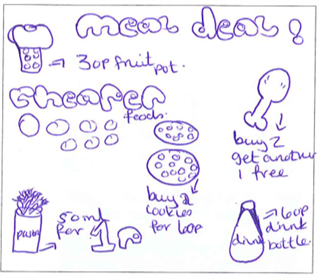 meal deal !
30p fruit pot.
cheaper
foods
buy 2
get another
1 free
buy 2
cookies
for 60p
pasta
for 1p
drink
60p
drink
bottle.